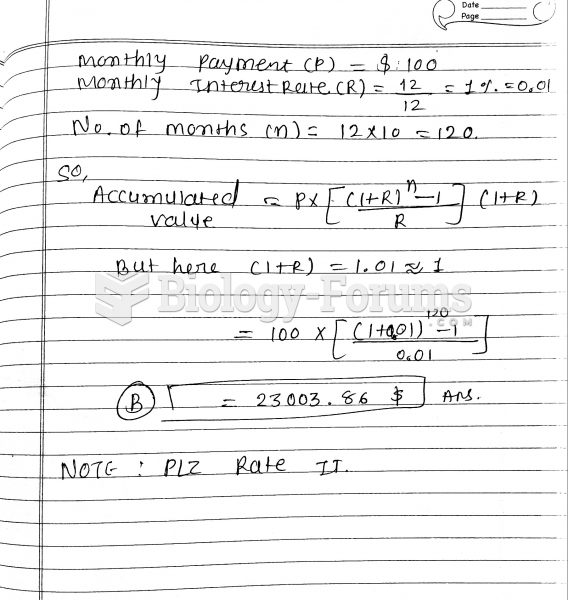 Date
Page
Monthly Payment (P) = $.100
Monthly Interest Rate (R) = 12/12 = 1 % = 0.01
No. of months (n) = 12x10 = 120.
SO,
Accumulated value = P x [ (1+R)^n - 1 / R ] (1+R)
But here (1+R) = 1.01 ≈ 1
Biology-Forums
.COM
= 100 x [ (1+0.01)^120 - 1 / 0.01 ]
(B) = 23003.86 $ Ans.
NOTE : PLZ Rate IT.